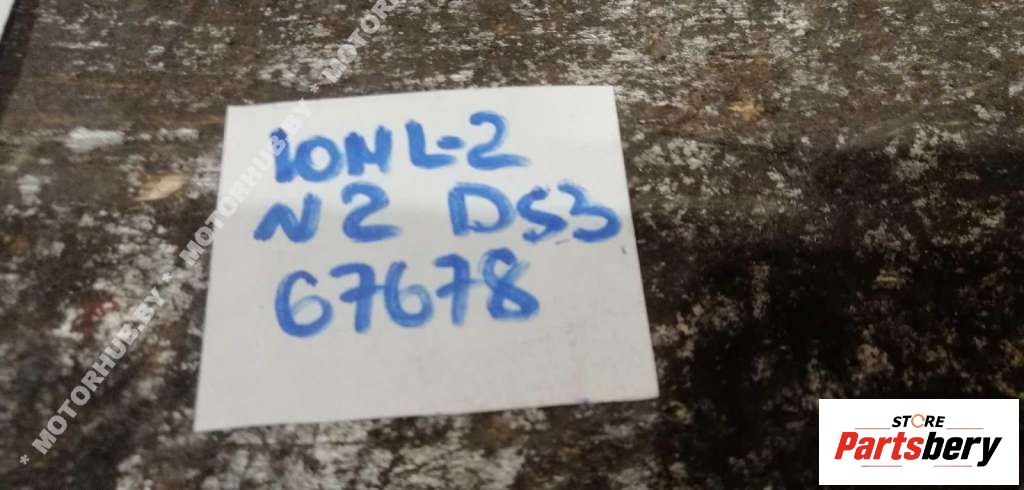 10HL-2
N2 DS3
67678
* MOTORHUB.BY * MOTORHUB.BY * MOTORHUB.BY
STORE
Partsbery